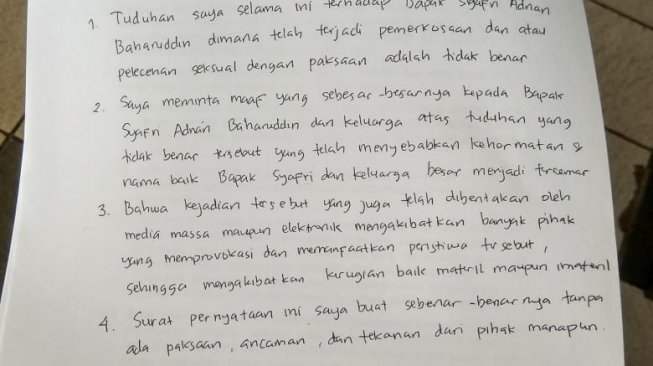 1. Tuduhan saya selama ini terhadap Bapak Syafri Adnan
Baharuddin dimana telah terjadi pemerkosaan dan atau
pelecehan seksual dengan paksaan adalah tidak benar
2. Saya meminta maaf yang sebesar-besarnya kepada Bapak
Syafri Adnan Baharuddin dan keluarga atas tuduhan yang
tidak benar tersebut yang telah menyebabkan kehormatan &
nama baik Bapak Syafri dan keluarga besar menjadi tercemar
3. Bahwa kejadian tersebut yang juga telah dibentakan oleh
media massa maupun elektronik mengakibatkan banyak pihak
yang memprovokasi dan memanfaatkan peristiwa tersebut,
sehingga mengakibatkan kerugian baik materil maupun imateril
4. Surat pernyataan ini saya buat sebenar-benarnya tanpa
ada paksaan, ancaman, dan tekanan dari pihak manapun.